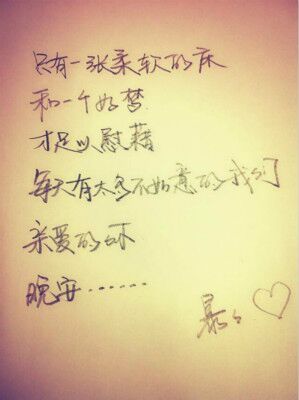 只有一张柔软的床
和一个好梦
才足以慰藉
每天有太多不如意的我们
亲爱的
晚安……